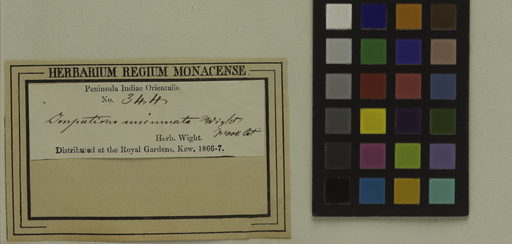 HERBARIUM REGIUM MONACENSE.
Peninsula Indiae Orientalis.
No. 344
Impatiens Wight
Herb. Wight.
Distributed at the Royal Gardens, Kew, 1866-7.